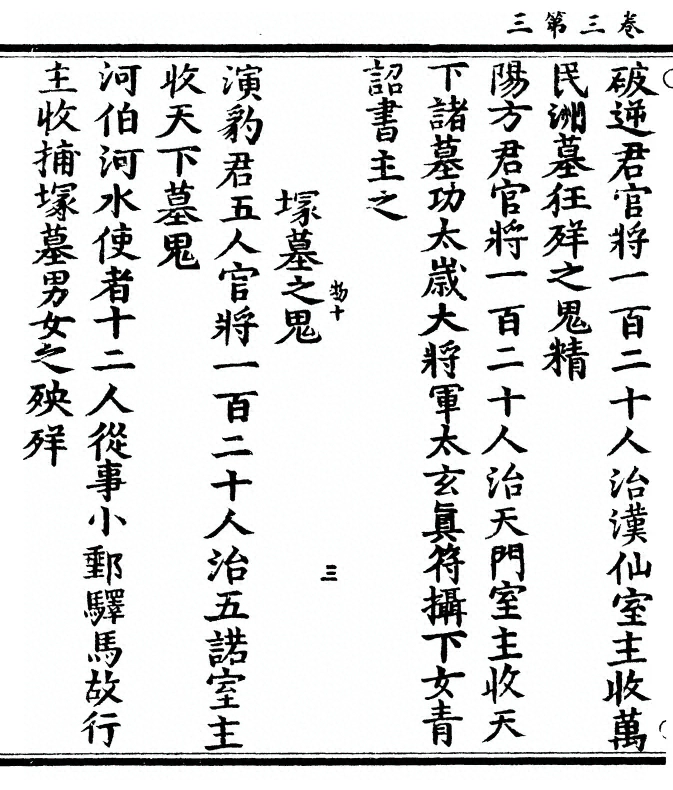 卷三第三
破逆君官將一百二十人治漢仙室主收萬
民洲墓狂殍之鬼精
陽方君官將一百二十人治天門室主收天
下諸墓功太歲大將軍太玄眞符攝下女青
詔書主之
塚墓之鬼
物十
三
演豹君五人官將一百二十人治五諾室主
收天下墓鬼
河伯河水使者十二人從事小郵驛馬故行
主收捕塚墓男女之殃殍